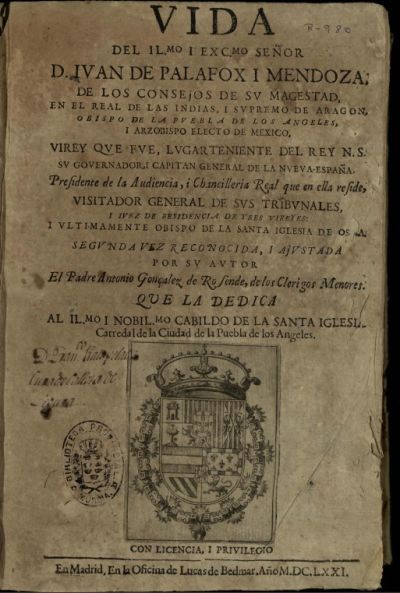 VIDA
R-980
DEL IL.MO I EXC.MO SEÑOR
D. IVAN DE PALAFOX I MENDOZA;
DE LOS CONSEJOS DE SV MAGESTAD,
EN EL REAL DE LAS INDIAS, I SVPREMO DE ARAGON,
OBISPO DE LA PVEBLA DE LOS ANGELES,
I ARZOBISPO ELECTO DE MEXICO,
VIREY QVE FVE, LVGARTENIENTE DEL REY N. S.
SV GOVERNADOR, I CAPITAN GENERAL DE LA NVEVA-ESPAÑA.
Presidente de la Audiencia, i Chancilleria Real que en ella reside,
VISITADOR GENERAL DE SVS TRIBVNALES,
I IVEZ DE RESIDENCIA DE TRES VIREYES:
I VLTIMAMENTE OBISPO DE LA SANTA IGLESIA DE OS A.
SEGVNDA VEZ RECONOCIDA, I AJVSTADA
POR SV AVTOR
El Padre Antonio Gonçalez de Rosende, de los Clerigos Menores.
QVE LA DEDICA
AL IL.MO I NOBIL.MO CABILDO DE LA SANTA IGLESI
Catredal de la Ciudad de la Puebla de los Angeles.
BIBLIOTECA
CON LICENCIA, I PRIVILEGIO
En Madrid, En la Oficina de Lucas de Bedmar. Año M.DC.LXXI.